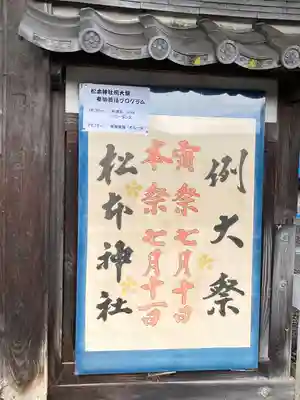 松本神社例大祭
奉納演芸プログラム
例大祭
宵祭七月十日
本祭七月十一日
松本神社